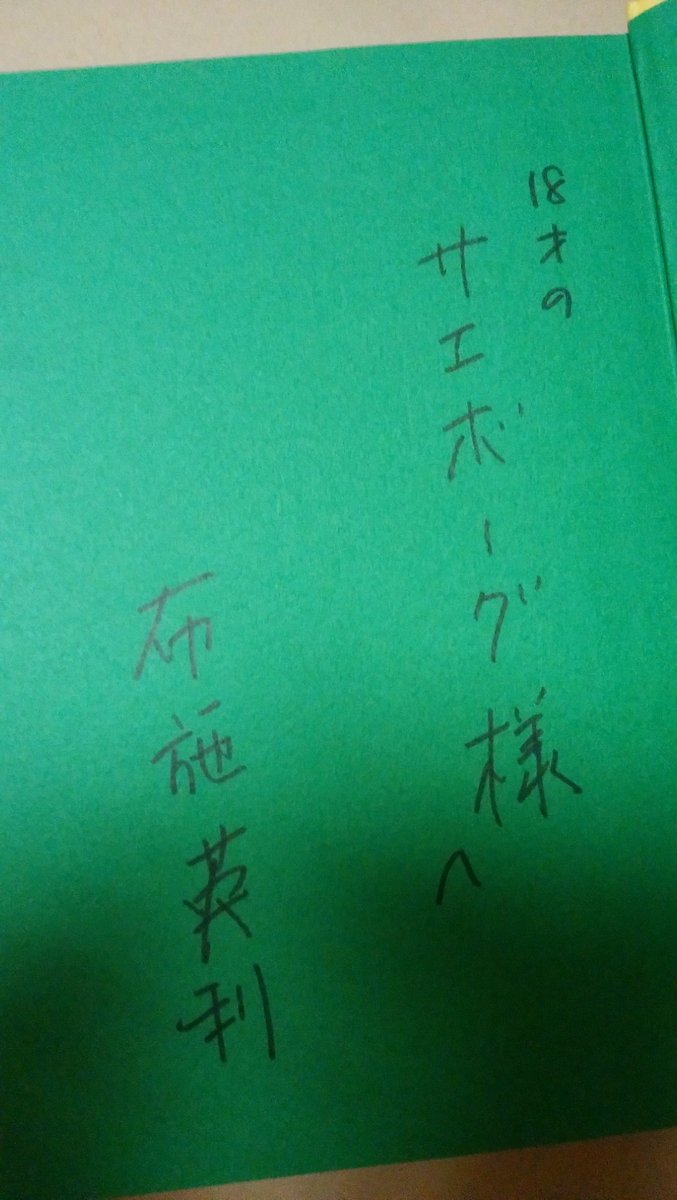 18才の
サエボーグ様へ
布施英利